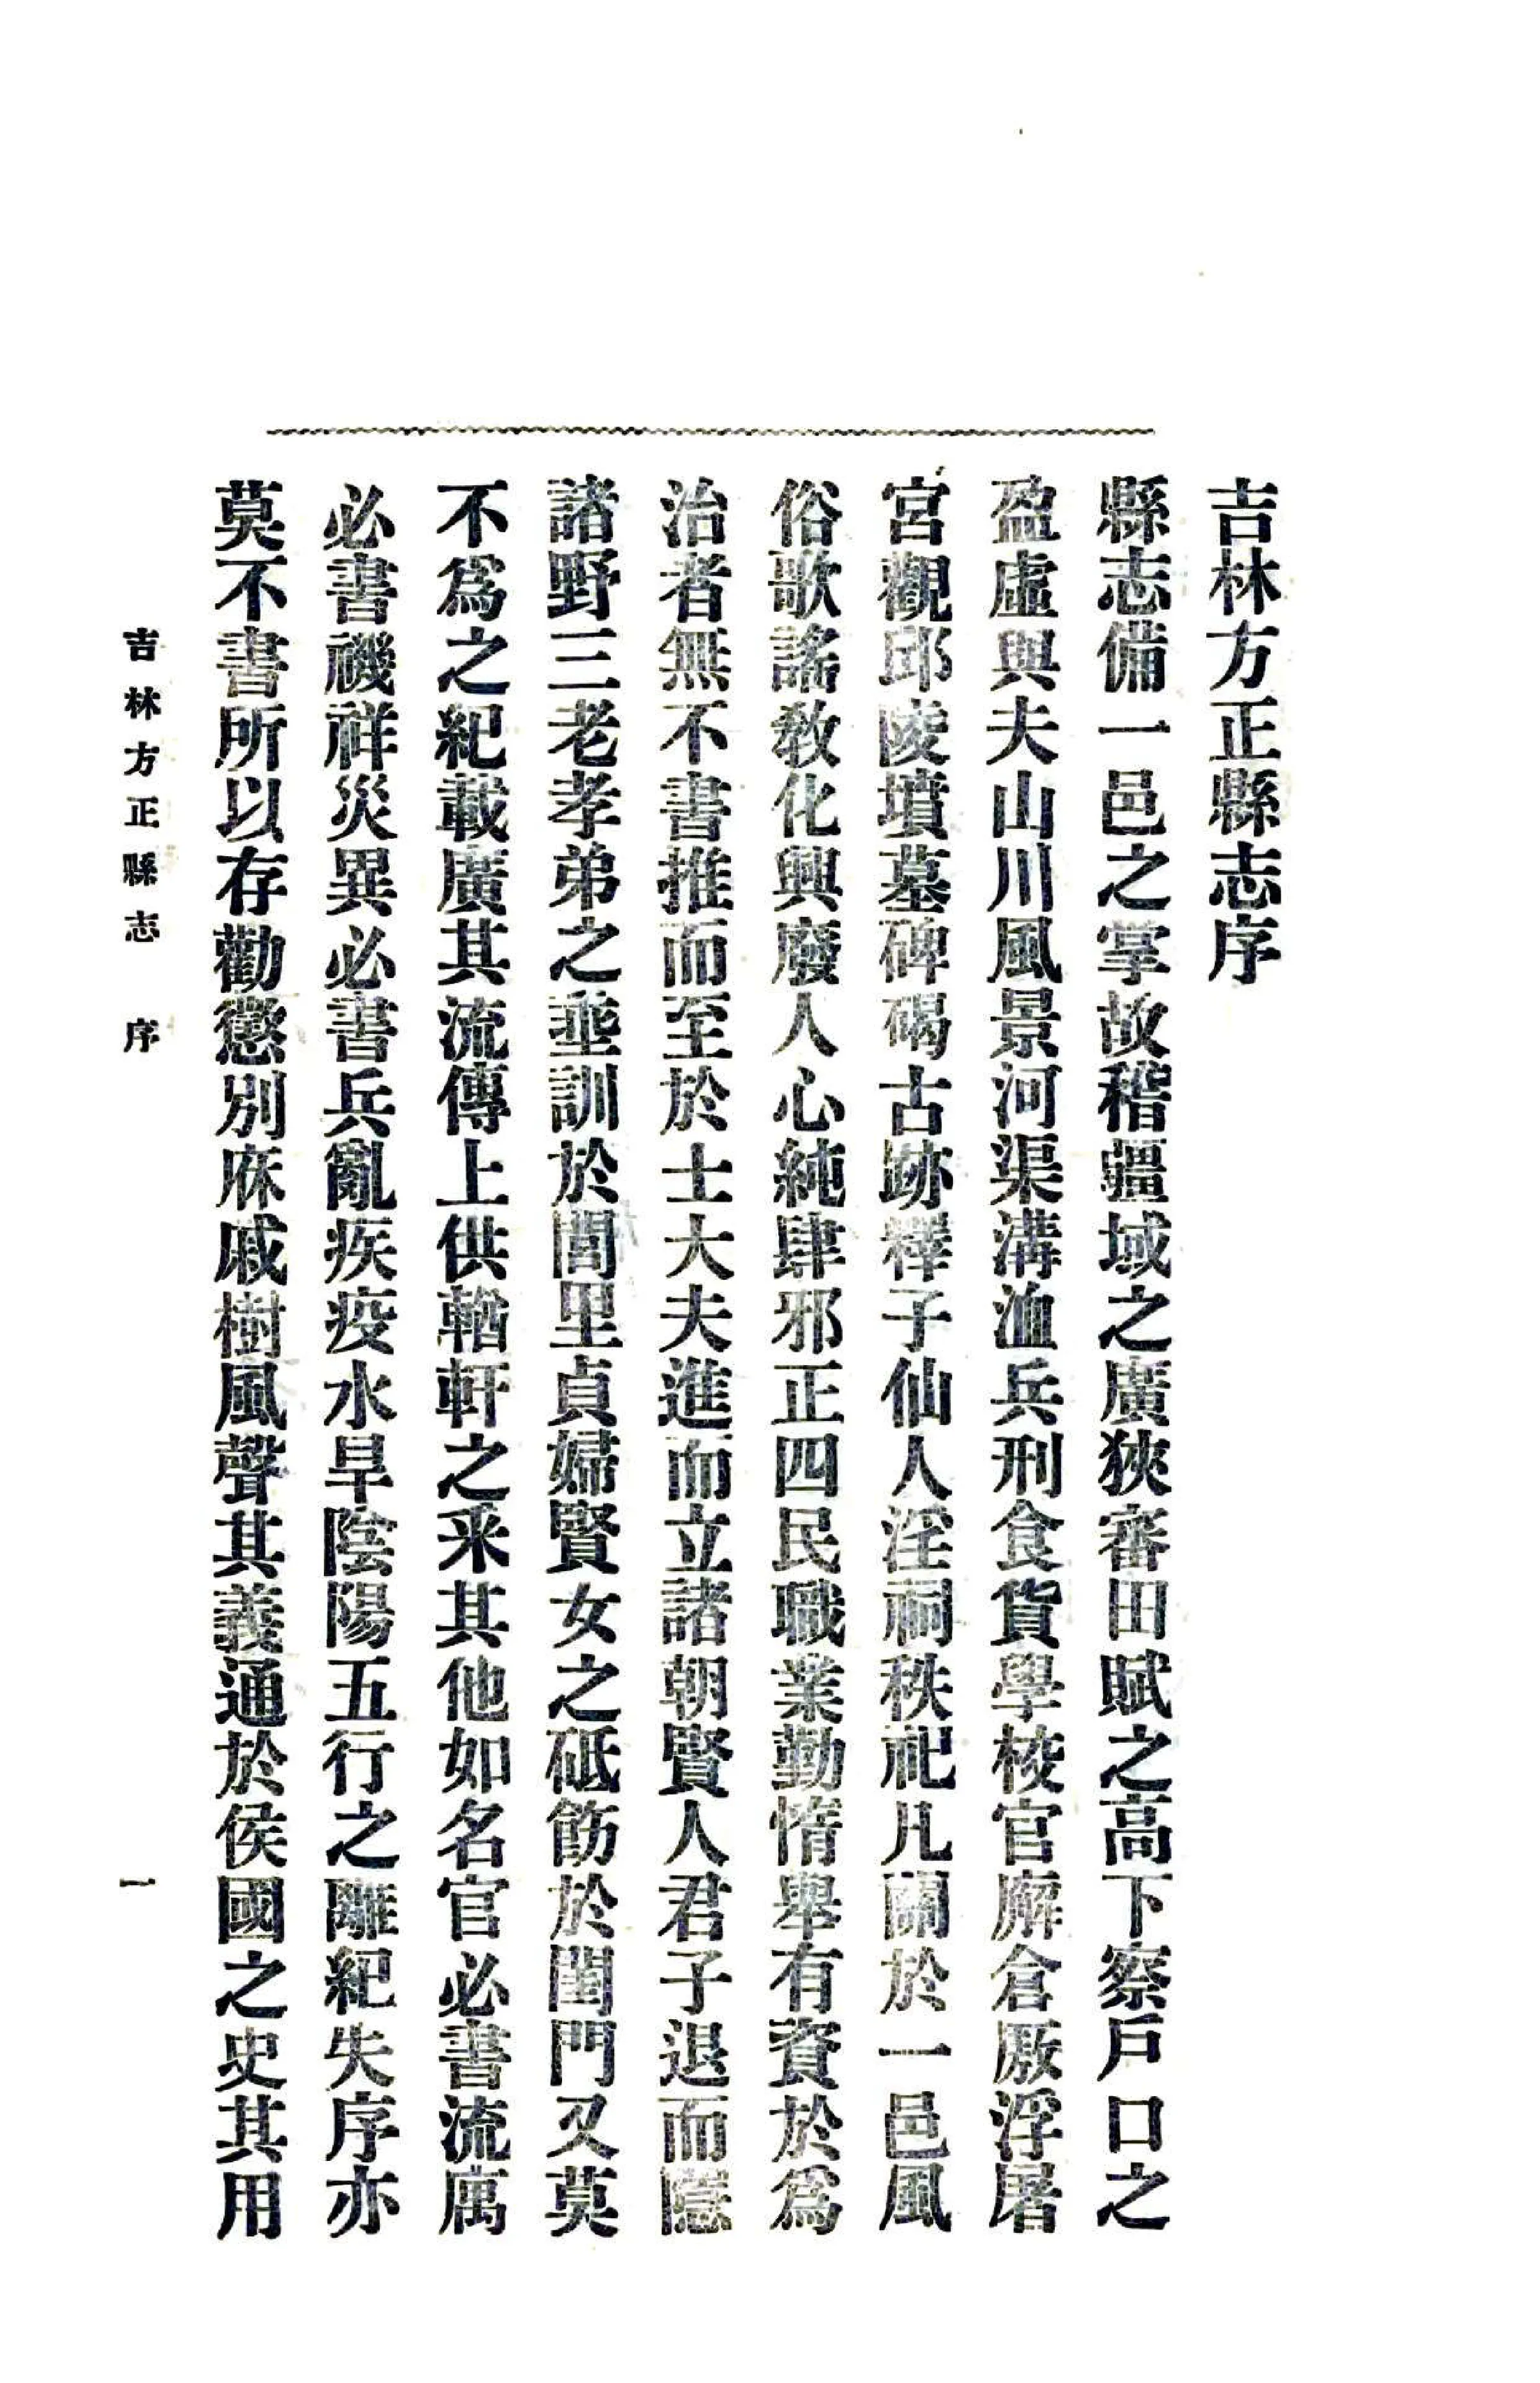 吉林方正縣志序
縣志備一邑之掌故稽疆域之廣狹審田賦之高下察戶口之
盈虛與夫山川風景河渠溝洫兵刑食貨學校官廨倉厫浮屠
宮觀邱陵墳墓碑碣古跡釋子仙人淫祠秩祀凡關於一邑風
俗歌謠敎化興廢人心純肆邪正四民職業勤惰舉有資於爲
治者無不書推而至於士大夫進而立諸朝賢人君子退而隱
諸野三老孝弟之埀訓於閭里貞婦賢女之砥飭於閨門又莫
不爲之紀載廣其流傳上供輶軒之釆其他如名宦必書流寓
必書禨祥災異必書兵亂疾疫水旱陰陽五行之離紀失序亦
莫不書所以存勸懲別庥戚樹風聲其義通於侯國之史其用
吉林方正縣志 序 一